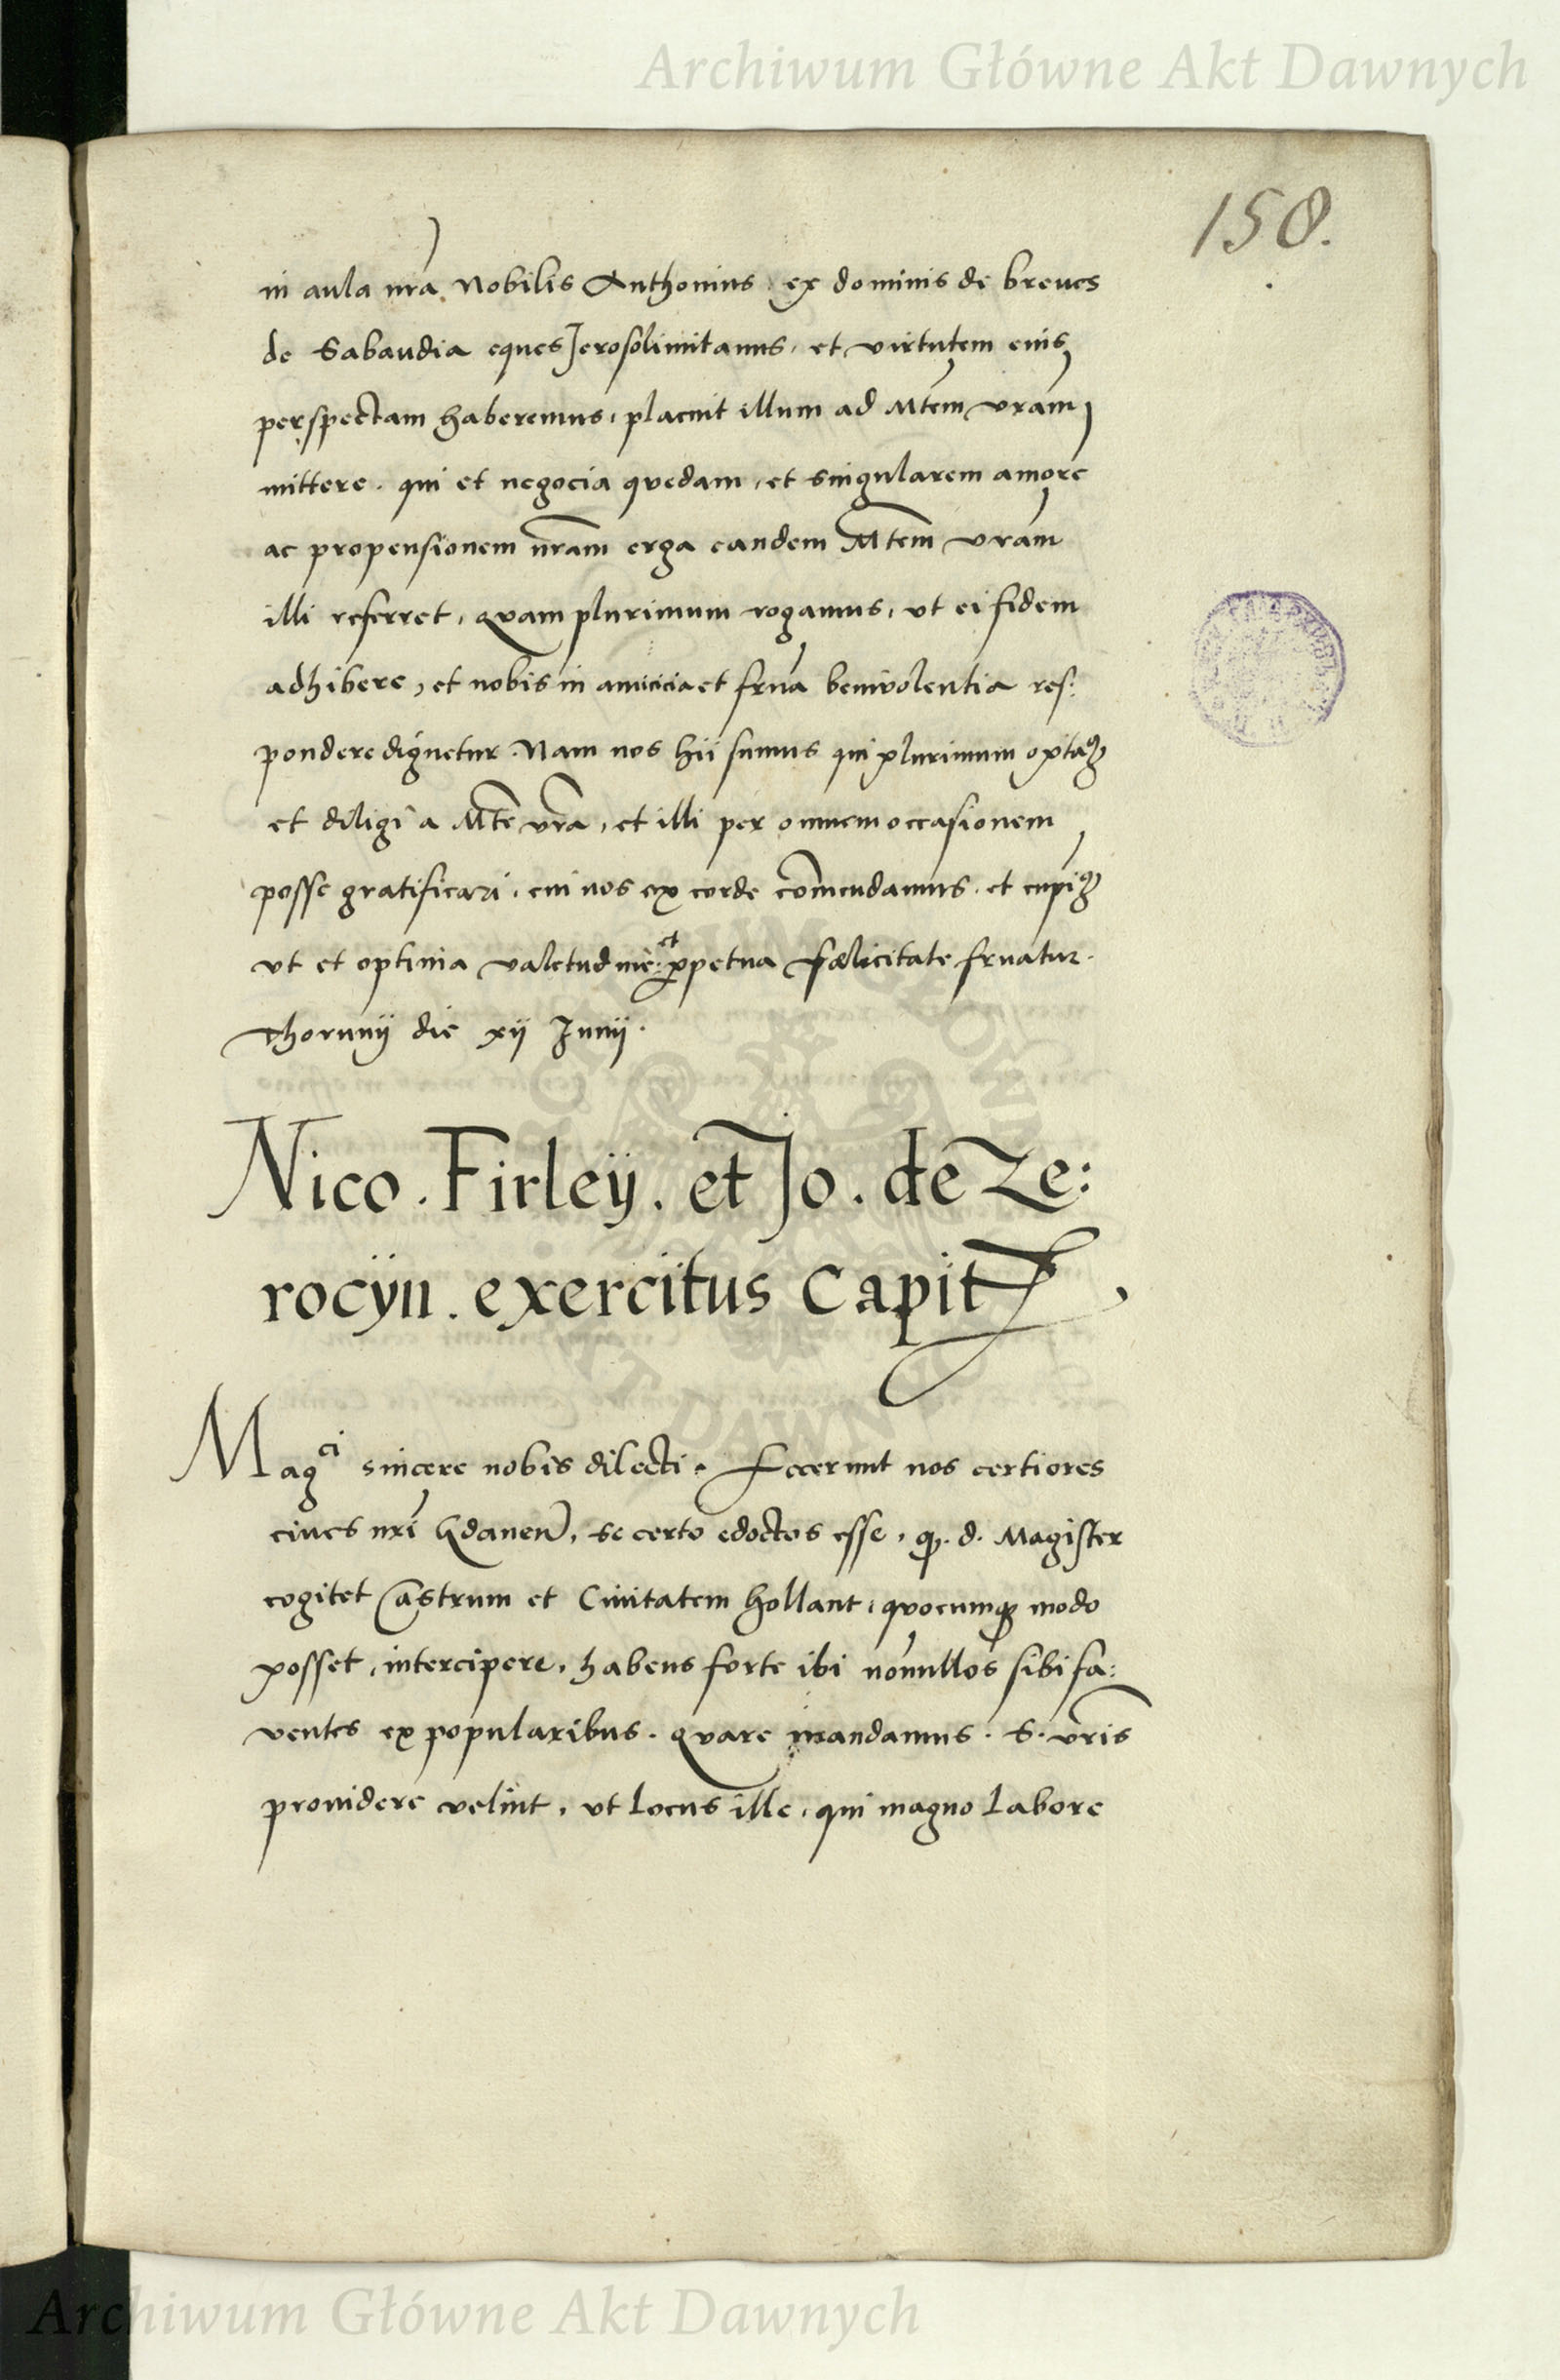 Archiwum Główne Akt Dawnych
158.
in aula nrã Nobilis Anthonius ex dominis de breues
de Sabaudia eques Jerosolimitanus, et virtutem eius
perspectam haberemus, placuit illum ad Mtem vram
mittere. qui et negocia quedam, et singularem amore
ac propensionem nram erga eandem Mtem vram
illi referret, quam plurimum rogamus, vt ei fidem
adhibere, et nobis in amicicia et frna benivolentia res:
pondere dignetur. Nam nos hii sumus qui plurimum optaꝫ
et diligi a Mte vra, et illi per omnem occasionem
posse gratificari, cui nos ex corde comendamus, et cupiꝫ
vt et optima valetudine: et ꝑpetua fælicitate fruatur.
Thorunij die xij Junij.
Nico. Firleÿ. et Jo. de Ze:
rocÿn. exercitus Capit
Magci sincere nobis dilecti. Fecerunt nos certiores
ciues nri Gdanen, se certo edoctos esse, ꝙ. d. Magister
cogitet Castrum et Ciuitatem Hollant, quocumqꝫ modo
posset, intercipere, habens forte ibi nonnullos sibi fa:
uentes ex popularibus. quare mandamus. S. vris
prouidere velint, vt locus ille, qui magno labore
Archiwum Główne Akt Dawnych